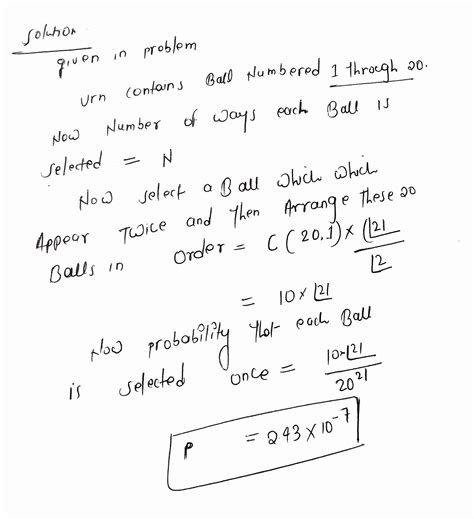 Solution
given in problem
Urn contains Ball Numbered 1 through 20.
Now Number of ways each Ball is
selected = N
Now select a Ball which which
Appear Twice and then Arrange these 20
Balls in order = C(20,1) × (|21 / |2
= 10 × |21
Now probability that each Ball
is selected once = 10×|21 / 20^21
P = 243 × 10^-7